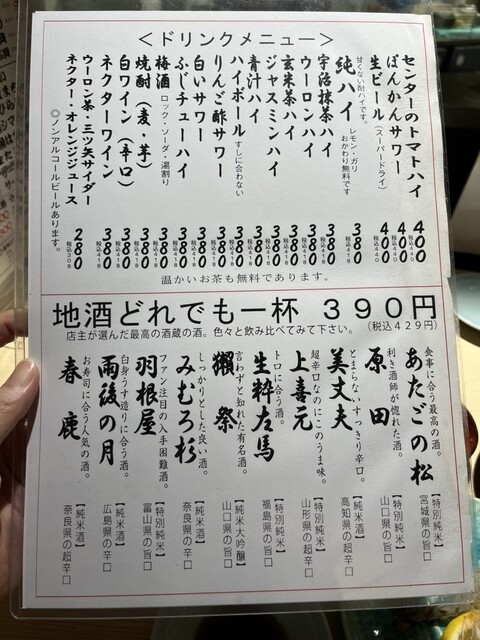 ＜ドリンクメニュー＞
センターのトマトハイ 400 税込440
ぽんかんサワー 400 税込440
生ビール（スーパードライ） 400 税込440
甘くない酎ハイです。
純ハイ レモン・ガリ おかわり無料です 380 税込418
宇治抹茶ハイ 380 税込418
ウーロンハイ 380 税込418
玄米茶ハイ 380 税込418
ジャスミンハイ 380 税込418
青汁ハイ 380 税込418
ハイボール すしに合わない 380 税込418
りんご酢サワー 380 税込418
白いサワー 380 税込418
ふじチューハイ 380 税込418
梅酒 ロック・ソーダ・湯割り 380 税込418
焼酎（麦・芋） 380 税込418
白ワイン（辛口） 380 税込418
ネクターワイン 380 税込418
ウーロン茶・三ツ矢サイダー
ネクター・オレンジジュース 280 税込308
◎ノンアルコールビールあります。
温かいお茶も無料であります。
地酒どれでも一杯 390円
（税込429円）
店主が選んだ最高の酒蔵の酒。色々と飲み比べてみて下さい。
食事に合う最高の酒。
あたごの松 【特別純米】 宮城県の旨口
利き酒師が惚れた酒。
原田 【純米酒】 山口県の旨口
とまらないすっきり辛口。
美丈夫 【純米酒】 高知県の超辛口
超辛口なのにこのうま味。
上喜元 【特別純米】 山形県の超辛口
トロに合う酒。
生粋左馬 【特別純米】 福島県の旨口
言わずと知れた有名酒。
獺祭 【純米大吟醸】 山口県の旨口
しっかりとした良い酒。
みむろ杉 【純米酒】 奈良県の辛口
ファン注目の入手困難酒。
羽根屋 【特別純米】 富山県の旨口
白身うす造りに合う酒。
雨後の月 【純米酒】 広島県の辛口
お寿司に合う人気の酒。
春鹿 【純米酒】 奈良県の超辛口